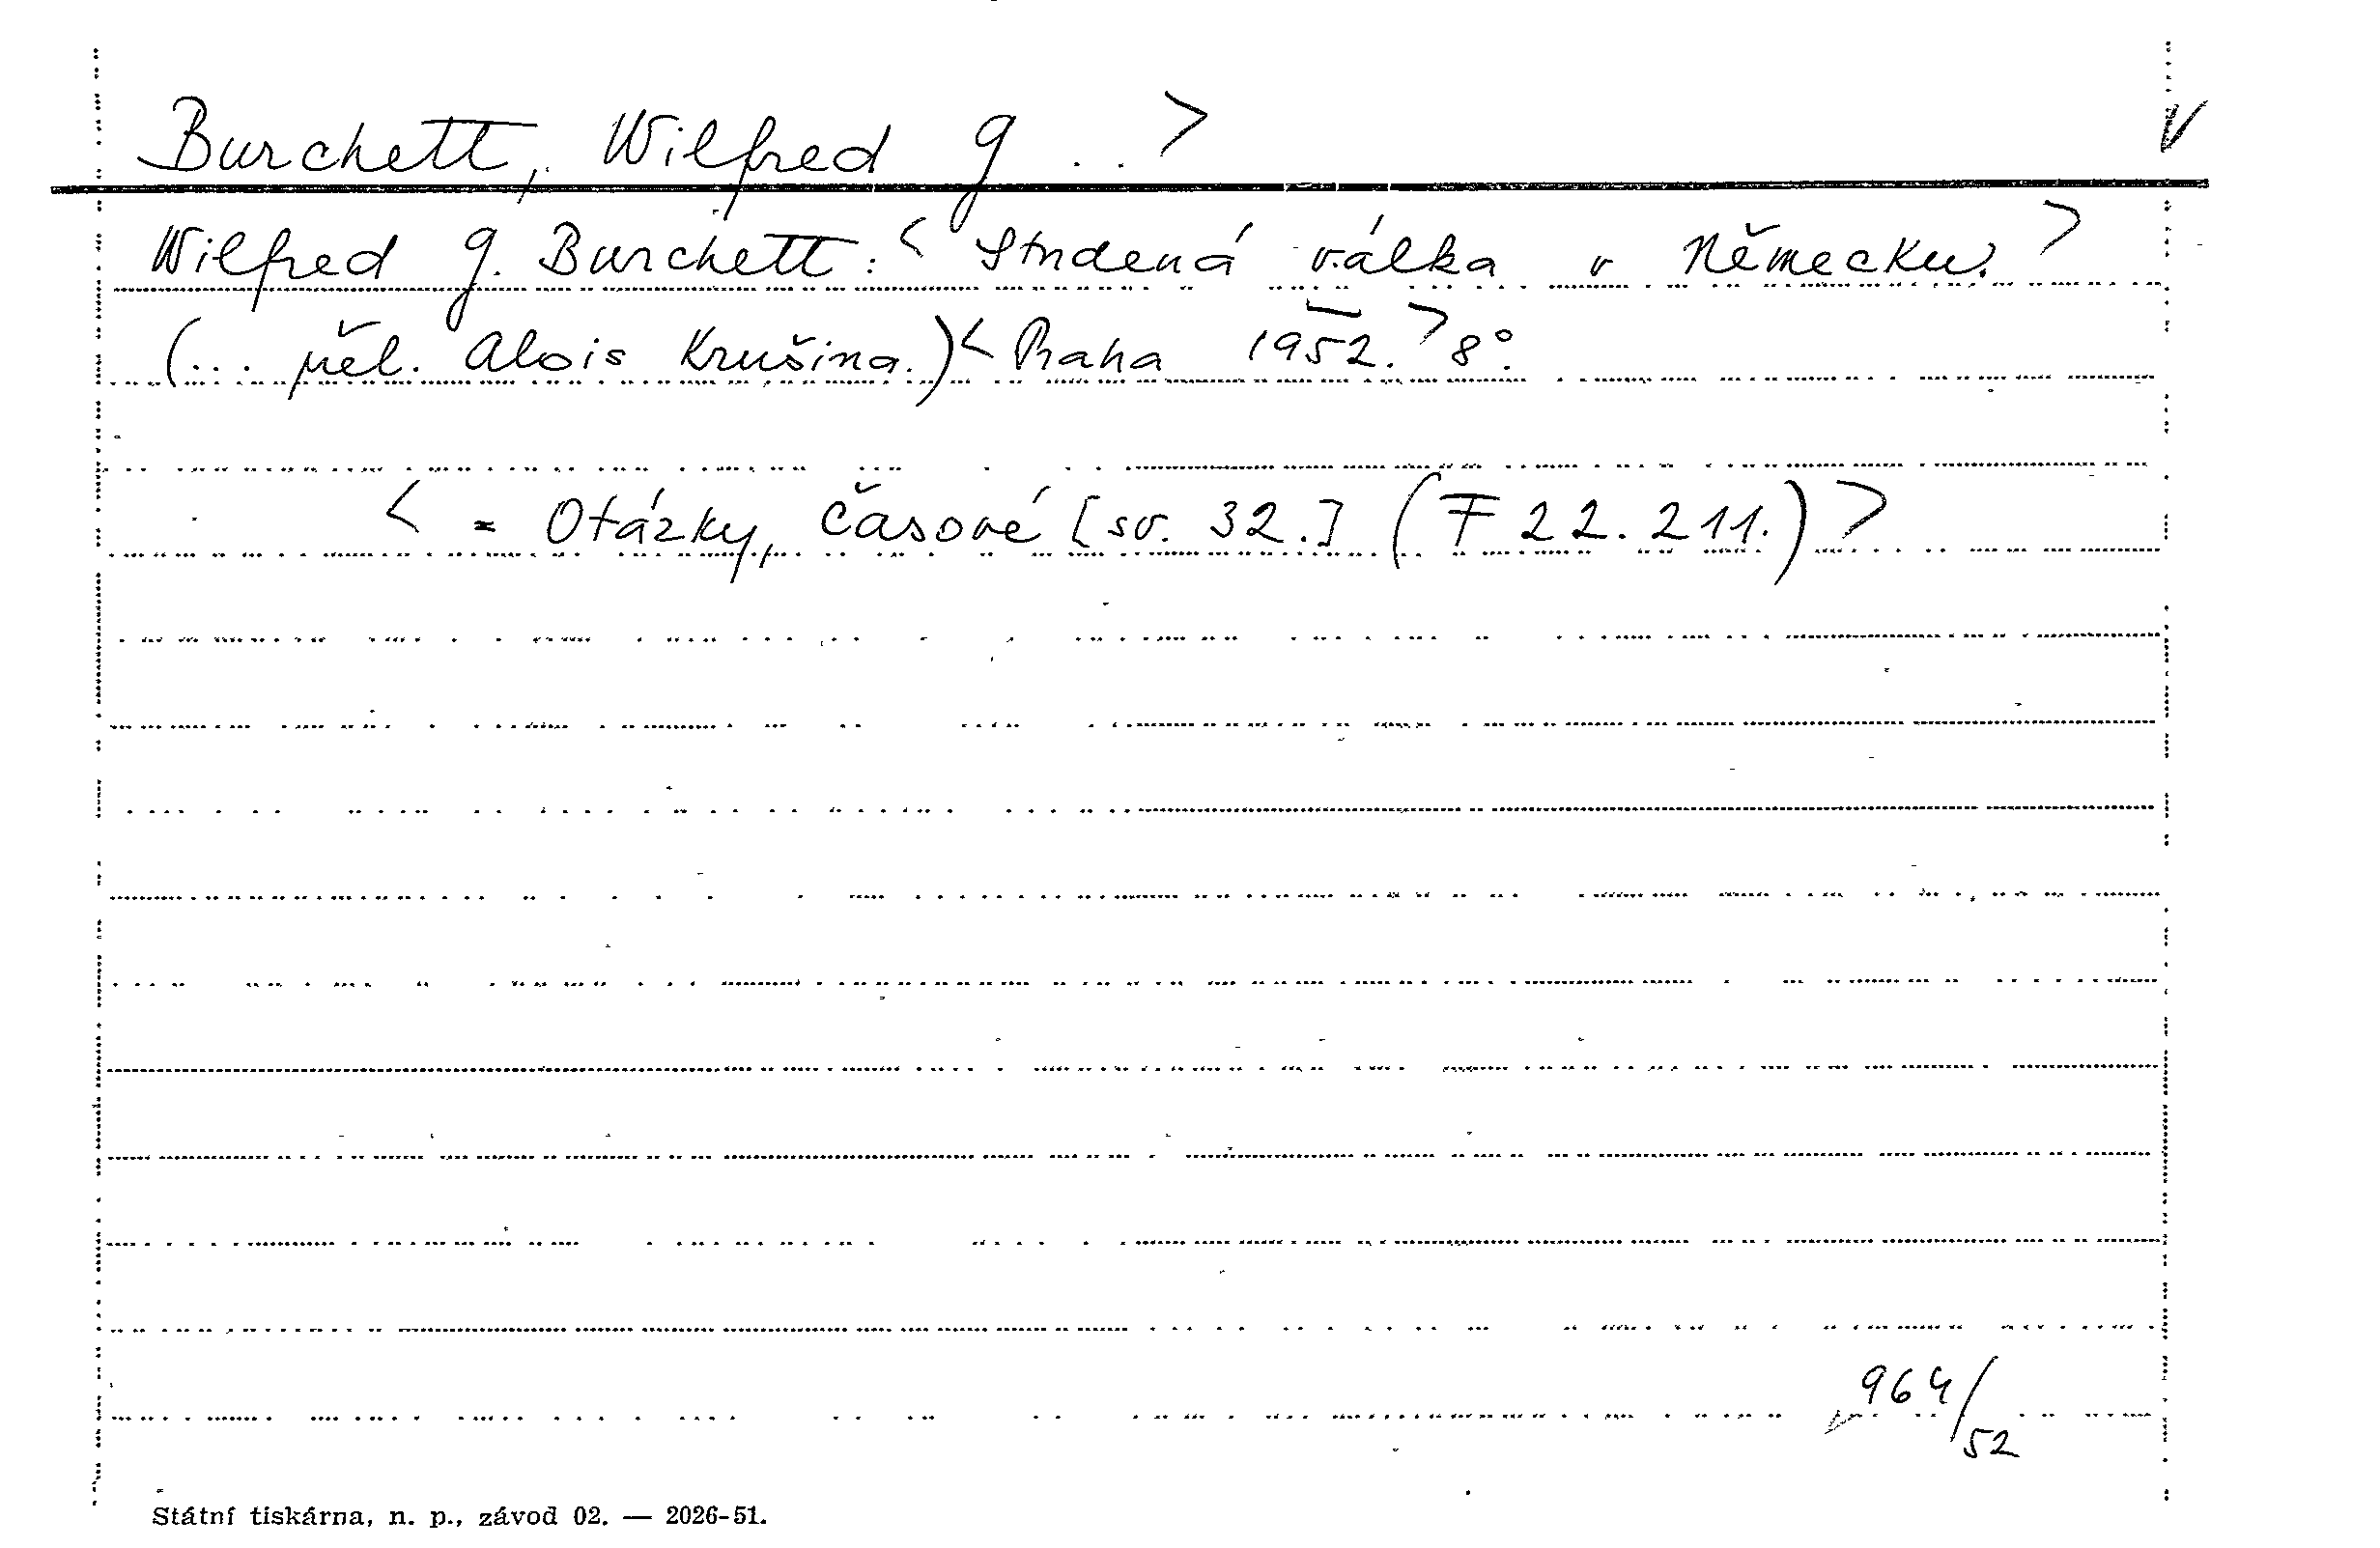 Burchett, Wilfred G . . > V
Wilfred G. Burchett: < Studená válka v Německu. >
(... přel. Alois Krušina.) < Praha 1952. > 8°.
< = Otázky, časové [sv. 32.] (F 22.211.) >
964/52
Státní tiskárna, n. p., závod 02. — 2026-51.